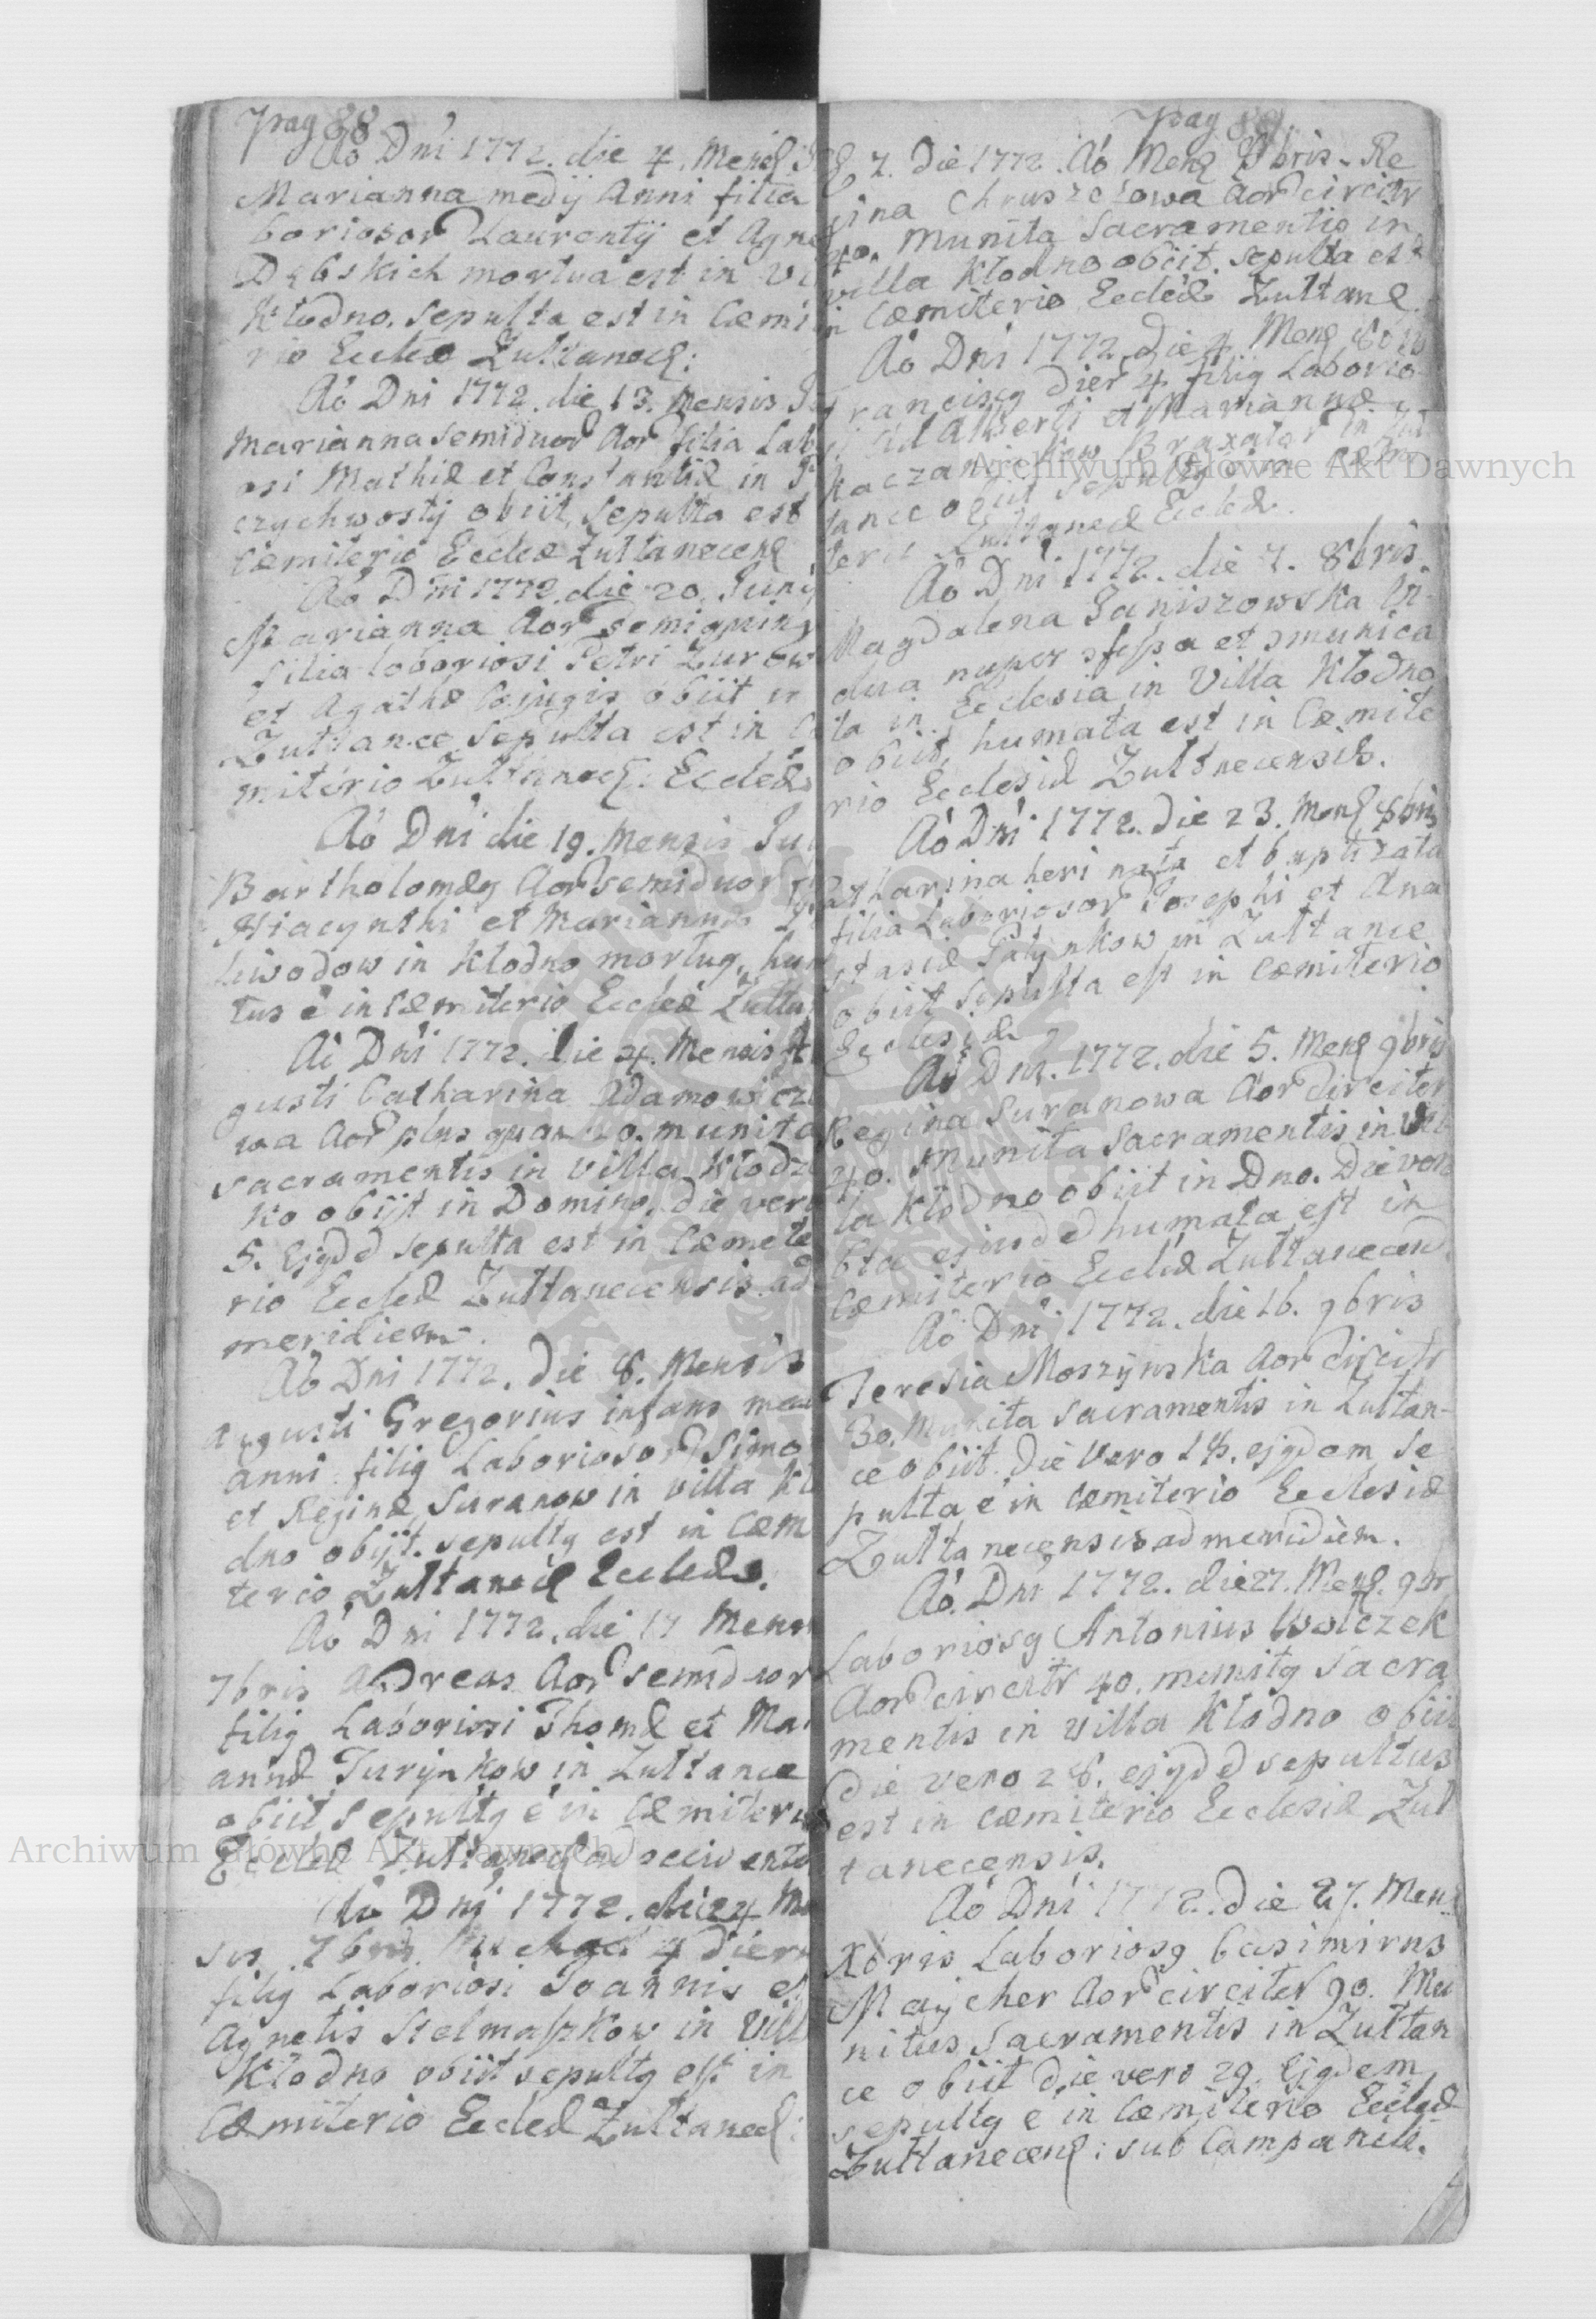 pag 88
Aõ Dni 1772. die 4. Mens
Marianna medij Anni filia
borioso℞ Laurentij et Agne
Dębskich mortua est in Vi
Kłodno. sepulta est in Cœmi
rio Ecclæ Zułtanec:
Aõ Dni 1772. die 13. Mensis
Marianna semiduo℞ Ao℞ filia Lab
osi Mathiæ et Constantiæ in
czychwosty obiit, Sepulta est
Cœmiterio Ecclæ Zułtanecen
Aõ Dni 1772. die 20. Junij
Marianna Ao℞ semiquinq
filia laboriosi Petri Zurow
et Agathæ Cojugis obiit in
Zułtance sepulta est in C
miterio Zułtanec. Ecclæ
Aõ Dni die 19. Mensis Ju
Bartholomæg Ao℞ semiduo℞
Hiacynthi et Mariannæ
liwodow in Kłodno mortug, hum
tus ẽ in Cœmiterio Ecclæ Zułta
Aõ Dni 1772. die 4. Mensis
gusti Catharina Adamowicz
wa Ao℞ plus quam munita
sacramentis in villa Kłodz
ko obijt in Domino, die vero
5. Ejgdd sepulta est in Cœmete
rio Ecclæ Zułtanecensis ad
meridiem.
Aõ Dni 1772. Die 8. Mensis
Augusti Gregorius infans
anni filig Laborioso℞ Simo
et Reginæ Suranow in villa Kł
dno obijt. sepultg est in Cœm
terio Zułtanec Ecclæ.
Aõ Dni 1772. die 17 Mens
7bris Andreas Ao℞ semiduor
filig Laboriosi Thomæ et Mar
annæ Jurijnkow in Zułtance
obiit sepultg ẽ in Cœmiterio
Ecclæ Zułtanec ad
Aõ Dni 1772. die 24 Me
sis 7bris 4 dier
filig Laboriosi Joannis et
Agnetis Stelmaszkow in Vill
Kłodno obiit sepultg est in
Cœmiterio Ecclæ Zułtanec:
pag 89
7. Die 1772. Aõ Mens 8bris. Re
gina Chruszczowa Ao℞ circitr
40. Munita Sacramentis in
villa Kłodno obiit. sepulta est
in Cœmiterio Ecclæ Zułtane
Aõ Dni 1772. Die 4 Mens
Francisg Dier 4 filig Laborio
Alberti et Mariannæ
Kaczanickow Braxator in Zuł
tance obiit sepultg in Cœmi
terio Zułtanec Ecclæ.
Aõ Dni 1772. die 7. 8bris.
Magdalena Janiszowska Vi
dua nuper sfessa et smunica
ta in Ecclesia in Villa Kłodno
obiit, humata est in Cœmite
rio Ecclesiæ Zułtanecensis.
Aõ Dni 1772. Die 23. Mens 8bris
Catharina heri nata et baptizata
filia Laborioso℞ Josephi et Ana
stasiæ Patynkow in Zułtance
obiit sepulta est in Cœmiterio
Ecclesiæ
Aõ Dni. 1772. die 5. Mens 9bris
Regina Suranowa Ao℞ circiter
40. Munita Sacramentis in Vil
la Kłodno obiit in Dno. Die vero
6ta ejusdd humata est in
Cœmiterio Ecclæ Zułtanecen
Aõ Dni 1772. die 16. 9bris
Teresia Moszijnska Ao℞ circitr
30. Munita Sacramentis in Zułtan-
ce obiit. Die Vero 18. ejgdem se
pulta ẽ in Cœmiterio Ecclesiæ
Zułtanecensis ad meridiem.
Aõ. Dni 1772. die 27. Mens. 9br
Laboriosg Antonius Wołczek
Ao℞ circitr 40. munitg Sacra
mentis in villa Kłodno obiit
die vero 28. ejgdd sepultus
est in Cœmiterio Ecclesiæ Zuł
tanecensis.
Aõ Dni 1772. Die 27. Men
Xbris Laboriosg Casimirus
Maycher Ao℞ circiter 90. Mu
nitus Sacramentis in Zułtan
ce obiit die vero 29. Ejgdem
sepultg ẽ in Cœmiterio Ecclæ
Zułtanecens: sub Campanile.
Archiwum Główne Akt Dawnych
Archiwum Główne Akt Dawnych